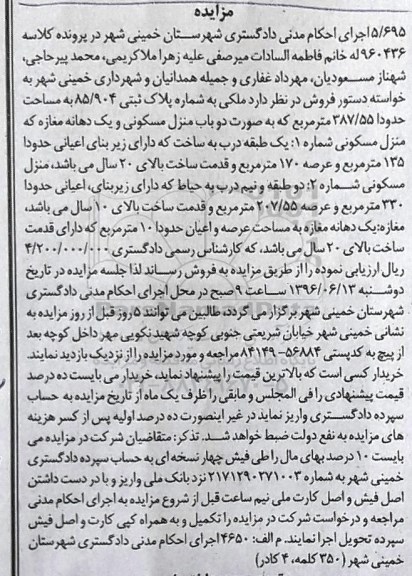 مزایده
۵/۶۹۵ اجرای احکام مدنی دادگستری شهرستان خمینی شهر در پرونده کلاسه
۹۶۰۴۳۶ له خانم فاطمه السادات میرصفی علیه زهرا ملاکریمی، محمد پیرحاجی،
شهناز مسعودیان، مهرداد غفاری و جمیله همدانیان و شهرداری خمینی شهر به
خواسته دستور فروش در نظر دارد ملکی به شماره پلاک ثبتی ۸۵/۹۰۴ به مساحت
حدودا ۳۸۷/۵۵ مترمربع که به صورت دو باب منزل مسکونی و یک دهانه مغازه که
منزل مسکونی شماره ۱: یک طبقه درب به ساخت که دارای زیر بنای اعیانی حدودا
۱۳۵ مترمربع و عرصه ۱۷۰ مترمربع و قدمت ساخت بالای ۲۰ سال می باشد، منزل
مسکونی شماره ۲: دو طبقه و نیم درب به حیاط که دارای زیربنای، اعیانی حدودا
۳۳۰ مترمربع و عرصه ۲۰۷/۵۵ مترمربع و قدمت ساخت بالای ۱۰ سال می باشد،
مغازه: یک دهانه مغازه به مساحت عرصه و اعیان حدودا ۱۰ مترمربع که دارای قدمت
ساخت بالای ۲۰ سال می باشد، که کارشناس رسمی دادگستری ۴/۲۰۰/۰۰۰/۰۰۰
ریال ارزیابی نموده را از طریق مزایده به فروش رساند لذا جلسه مزایده در تاریخ
دوشنبه ۱۳۹۶/۰۶/۱۳ ساعت ۹ صبح در محل اجرای احکام مدنی دادگستری
شهرستان خمینی شهر برگزار می گردد، طالبین می توانند ۵ روز قبل از روز مزایده به
نشانی خمینی شهر خیابان شریعتی جنوبی کوچه شهید نکویی مهر داخل کوچه بعد
از پیچ به کدپستی ۵۶۸۸۴-۸۴۱۴۹ مراجعه و مورد مزایده را از نزدیک بازدید نمایند.
خریدار کسی است که بالاترین قیمت را پیشنهاد نماید، خریدار می بایست ده درصد
قیمت پیشنهادی را فی المجلس و مابقی را ظرف یک ماه از تاریخ مزایده به حساب
سپرده دادگستری واریز نماید در غیر اینصورت ده درصد اولیه پس از کسر هزینه
های مزایده به نفع دولت ضبط خواهد شد. تذکر: متقاضیان شرکت در مزایده می
بایست ۱۰ درصد بهای مال را طی فیش چهار نسخه ای به حساب سپرده دادگستری
خمینی شهر به شماره ۲۱۷۱۲۹۰۲۷۱۰۰۳ نزد بانک ملی واریز و با در دست داشتن
اصل فیش و اصل کارت ملی نیم ساعت قبل از شروع مزایده به اجرای احکام مدنی
مراجعه و درخواست شرکت در مزایده را تکمیل و به همراه کپی کارت و اصل فیش
سپرده تحویل اجرا نمایند. م الف: ۴۶۵۰ اجرای احکام مدنی دادگستری شهرستان
خمینی شهر (۳۵۰ کلمه، ۴ کادر)